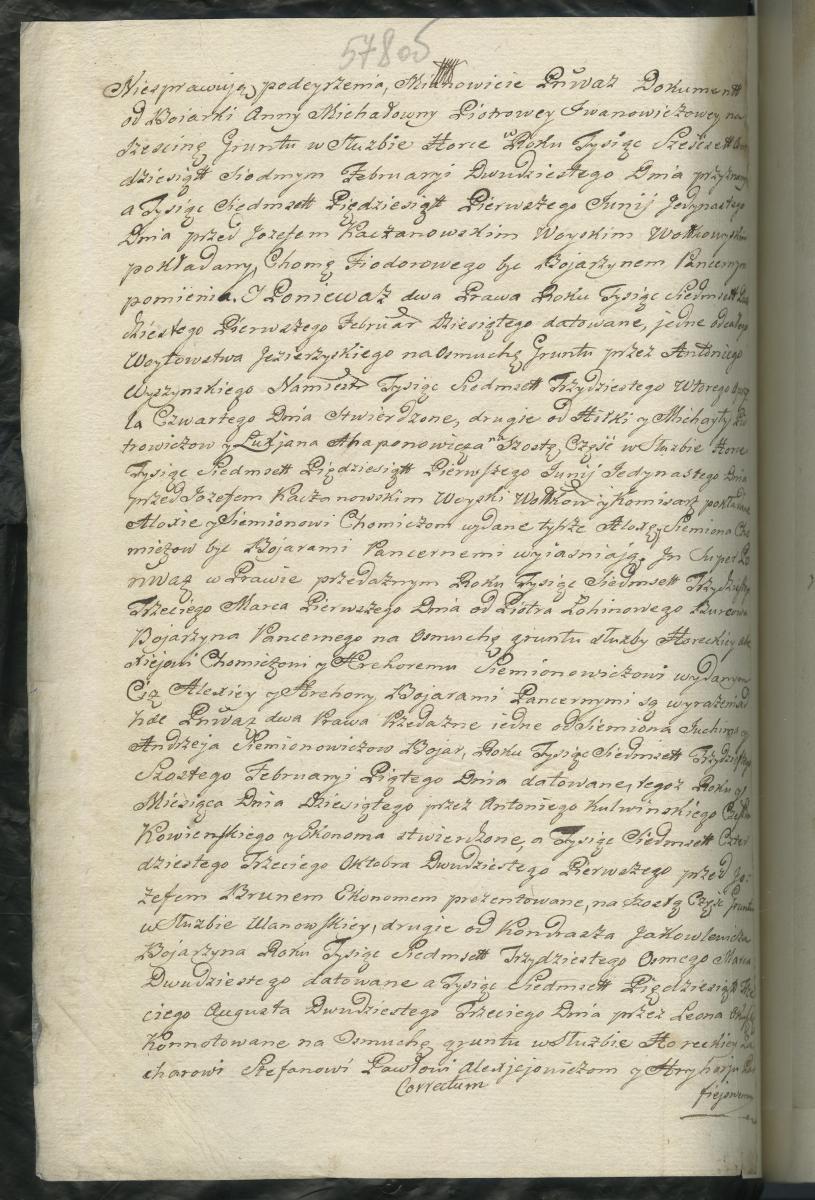 57805
Niesprawuią podeyrzenia, Mianowicie Pnwaz Dokument
od Bojarki Anny Michałowny Piotrowey Iwanowiczowey na
szescinę Gruntu w Służbie Horce w Roku Tysiąc Sześćsett
dziesiątt Siodmym Februaryi Dwudziestego Dnia przyznany
a Tysiąc Siedmsett Pięcdziesiątt Pierwszego Junij Jedynastego
Dnia przed Jozefem Kaczanowskim Woyskim Wołkowyskim
pokładany, Chomę Fiodorowego byc Bojarzynem Pancernym
pomienia. I Poniewaz dwa Prawa Roku Tysiąc Siedmsett
dziestego Pierwszego Februar Dziesiątego datowane, jedne od całego
Woytowstwa Jezierzyskiego na osmuchę Gruntu przez Antoniego
Wyszynskiego Namiest Tysiąc Siedmsett Trzydziestego Wtorego
la Czwartego Dnia Stwierdzone, drugie od Hilki y Michayły
trowiczow y Łukjana Ahaponowicza na Szostą Część w Służbie Horce
Tysiąc Siedmsett Pięcdziesiątt Pierwszego Junij Jedynastego Dnia
przed Jozefem Kaczanowskim Woyski Wołkow y Komisarz pokładane
Aloxie y Siemionowi Chomiczom wydane tychże Aloxę y Siemiona Cho
miczow byc Bojarami Pancernemi wyiasniaią. In Super
nwaz w Prawie przedaznym Roku Tysiąc Siedmsett
Trzeciego Marca Pierwszego Dnia od Piotra Łohinowego
Bojarzyna Pancernego na osmuchę gruntu służby Horeckiey
xiejowi Chomiczowi y Hrehoremu Siemionowiczowi wydanym
Ciż Alexiey y Hrehory Bojarami Pancernymi są wyrażeni
Pnwaz dwa Prawa Przedazne iedne od Siemiona
Andrzeja Siemionowiczow Bojar, Roku Tysiąc Siedmsett
Szostego Februaryi Piątego Dnia datowane, tegoz Roku y
Miesiąca Dnia Dziesiątego przez Antoniego Kulwinskiego
Kowienskiego y Ekonoma stwierdzone, a Tysiąc Siedmsett Czter
dziestego Trzeciego Oktobra Dwudziestego Pierwszego przed Jo-
zefem Brunem Ekonomem prezentowane, na szostą Część Gruntu
w Służbie Ulanowskiey, drugie od Kondrasza Jakowlewicza
Bojarzyna Roku Tysiąc Siedmsett Trzydziestego Osmego Marca
Dwudziestego datowane a Tysiąc Siedmsett Pięcdziesiątt Trze
ciego Augusta Dwudziestego Trzeciego Dnia przez Leona
Konnotowane na Osmuchę gruntu w Służbie Horeckiey Za
charowi Stefanowi Pawłowi Alexiejowiczom y Hryhorju
Correctum
fiejowem